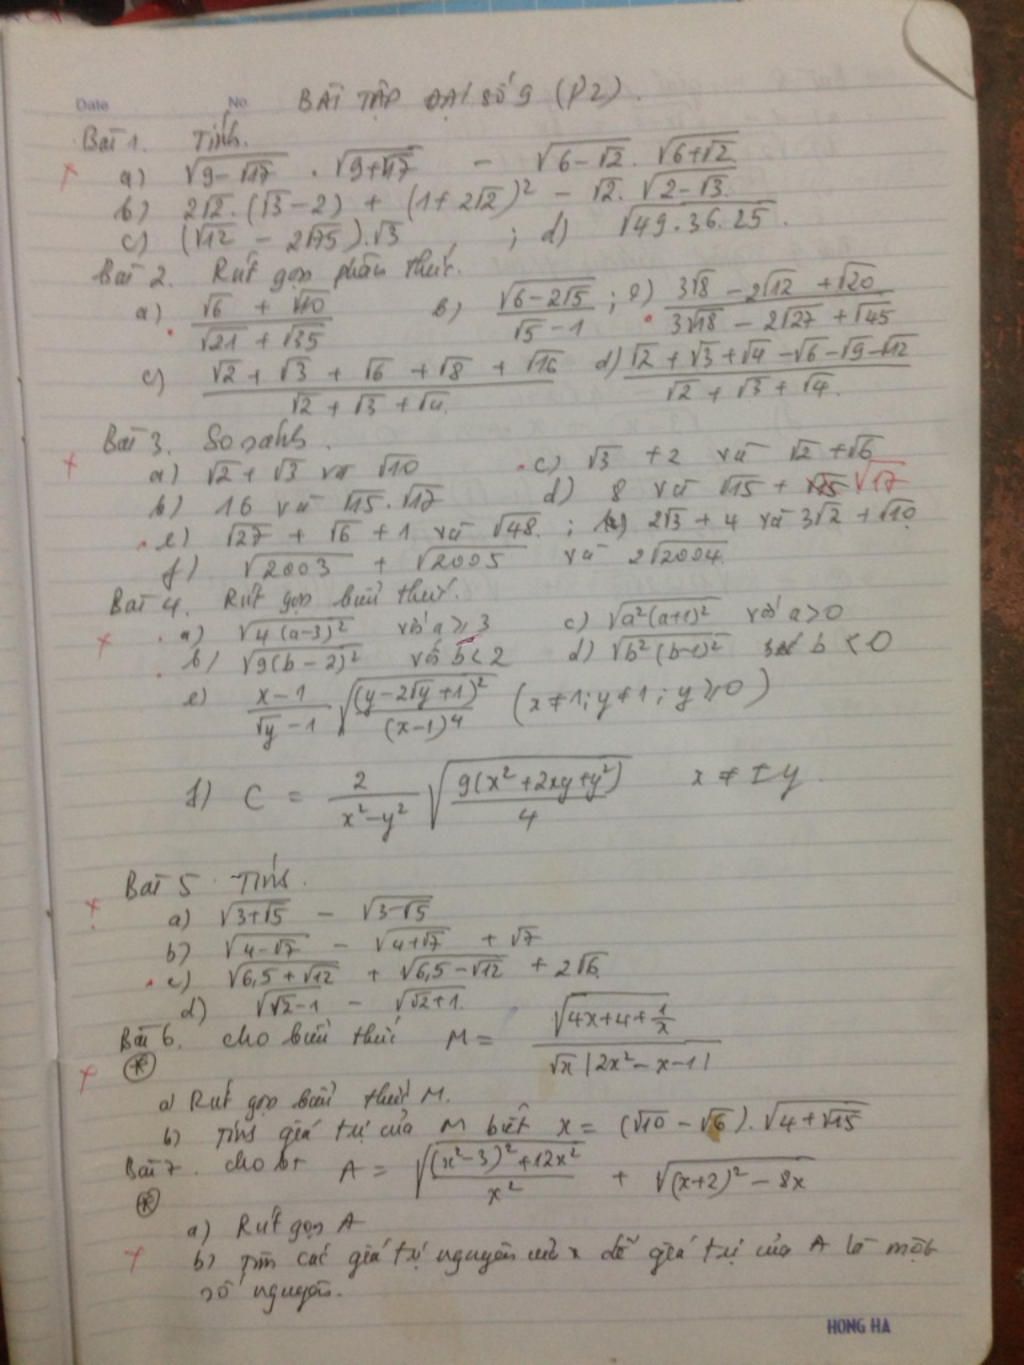 Date No.
BÀI TẬP ĐẠI SỐ 9 (P2).
Bài 1. Tính.
a) √(9-√17) . √(9+√17) - √(6-√2) . √(6+√2)
b) 2√2.(√3-2) + (1+2√2)² - √2. √(2-√3)
c) (√12 - 2√75).√3 ; d) √(49.36.25).
Bài 2. Rút gọn phân thức.
a) (√6 + √10)/(√21 + √35) b) √(6-2√5)/(√5-1) ; e) (3√8 - 2√12 + √20)/(3√18 - 2√27 + √45)
c) (√2 + √3 + √6 + √8 + √16)/(√2 + √3 + √4) d) (√2 + √3 + √4 - √6 - √9 - √12)/(√2 + √3 + √4)
Bài 3. So sánh.
a) √2 + √3 và √10 c) √3 + 2 và √2 + √6
b) 16 và √15.√17 d) 8 và √15 + √17
e) √27 + √6 + 1 và √48 ; 2√3 + 4 và 3√2 + √10
f) √2003 + √2005 và 2√2004
Bài 4. Rút gọn biểu thức.
a) √(4(a-3)²) với a ≥ 3 c) √(a²(a+1)²) với a > 0
b) √(9(b-2)²) với b < 2 d) √(b²(b-1)²) b < 0
e) (x-1)/(√y-1) √((y-2√y+1)²/(x-1)⁴) (x≠1; y≠1; y≥0)
f) C = 2/(x²-y²) √(9(x²+2xy+y²)/4) x ≠ ±y.
Bài 5. Tính.
a) √(3+√5) - √(3-√5)
b) √(4-√7) - √(4+√7) + √7
c) √(6,5+√12) + √(6,5-√12) + 2√6
d) √(√2-1) - √(√2+1).
Bài 6. cho biểu thức M = √(4x+4+1/x)/(√x |2x²-x-1|)
a) Rút gọn biểu thức M.
b) Tính giá trị của M biết x = (√10 - √6). √(4+√15)
Bài 7. cho bt A = √(((x²-3)²+12x²)/x²) + √((x+2)²-8x)
a) Rút gọn A
b) Tìm các giá trị nguyên của x để giá trị của A là một
số nguyên.
HONG HA